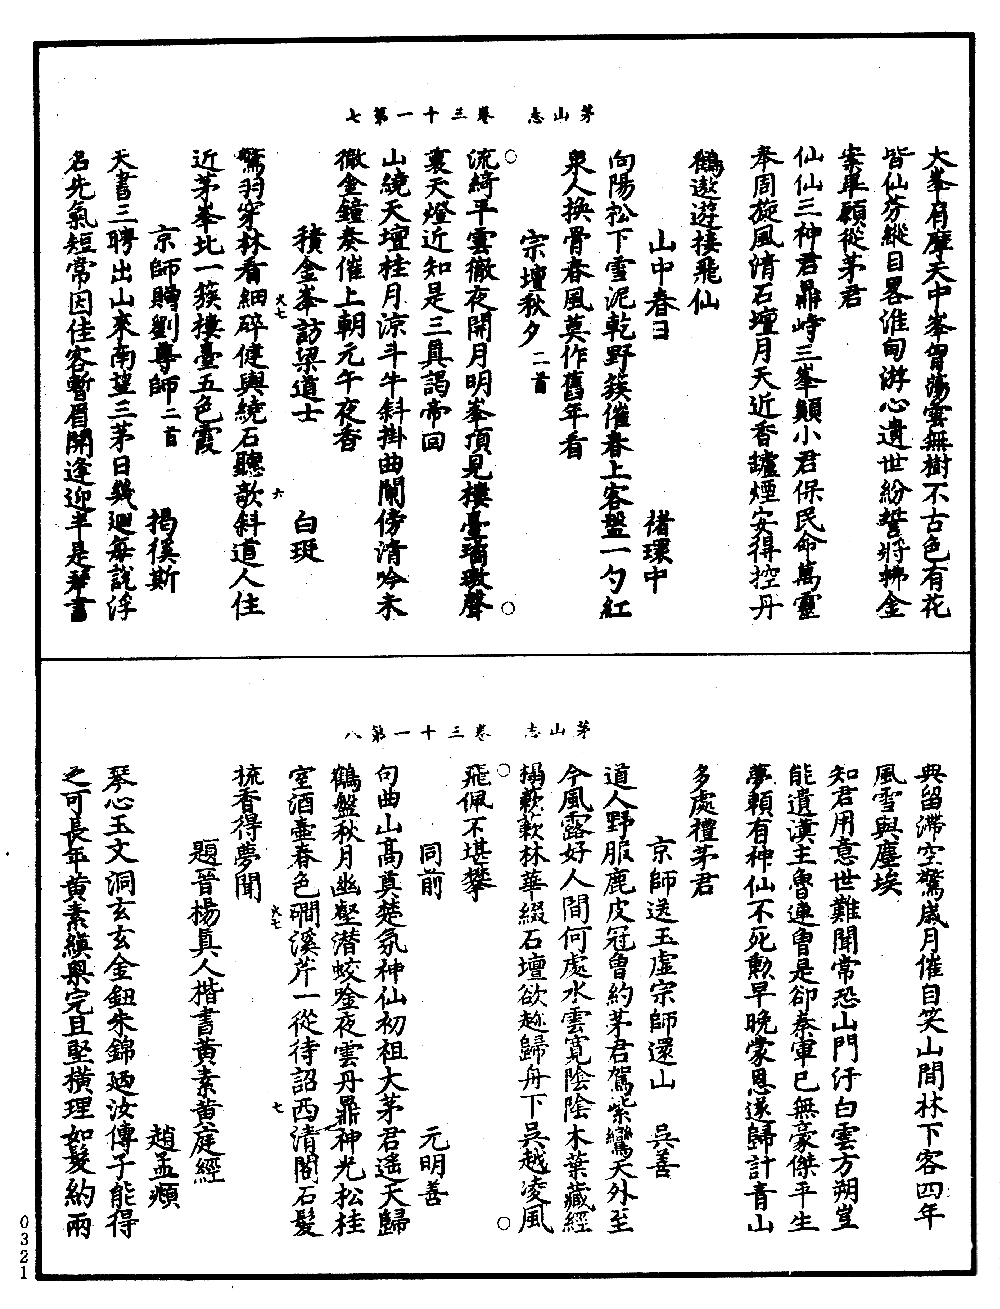 茅山志　卷三十一第七
大峯有摩天中峯胷蕩雲無樹不古色有花
皆仙芬縱目畧淮甸游心遺世紛誓將拂金
案畢願從茅君
仙仙三神君鼎峙三峯顛小君保民命萬靈
奉周旋風清石壇月天近香罏煙安得控丹
鶴遨遊接飛仙
山中春日　褚環中
向陽松下雪泥乾野蔟催春上客盤一勺紅
泉人換骨春風莫作舊年看
宗壇秋夕二首
流綺平雲徹夜開月明峯頂見樓臺璚璈聲
裏天燈近知是三真謁帝回
山繞天壇桂月涼斗牛斜掛曲闌傍清吟未
徹金鐘奏催上朝元午夜香
積金峯訪梁道士　白珽
鶩羽穿林看細碎健輿繞石聽欹斜道人住
近茅峯北一簇樓臺五色霞
京師贈劉尊師二首　揭徯斯
天書三聘出山來南望三茅日幾迴每說浮
名先氣短常因佳客暫眉開逢迎半是琴書
茅山志　卷三十一第八
興留滯空驚歲月催自笑山間林下客四年
風雪與塵埃
知君用意世難聞常恐山門汙白雲方朔豈
能遺漢主魯連曾是卻秦軍已無豪傑平生
夢賴有神仙不死勲早晚蒙恩遂歸計青山
多處禮茅君
京師送玉虛宗師還山　吳善
道人野服鹿皮冠曾約茅君駕紫鸞天外至
今風露好人間何處水雲寬陰陰木葉藏經
榻蔌蔌林華綴石壇欲趂歸舟下吳越凌風
飛佩不堪攀
同前　元明善
句曲山高真楚氛神仙初祖大茅君遙天歸
鶴盤秋月幽壑潛蛟唫夜雲丹鼎神光松桂
室酒壺春色磵溪芹一從待詔西清閣石髮
梳香得夢聞
題晉楊真人楷書黃素黃庭經
趙孟頫
琴心玉文洞玄玄金鈕朱錦廼汝傳子能得
之可長年黃素縝奧完且堅橫理如髮約兩
火七
六
火七
七
0321